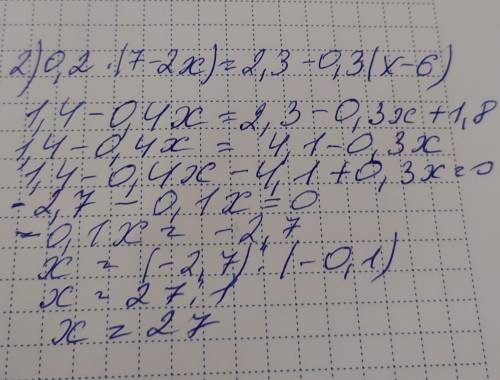 2) 0,2·(7-2x)=2,3-0,3(x-6)
1,4-0,4x=2,3-0,3x+1,8
1,4-0,4x = 4,1-0,3x
1,4-0,4x-4,1+0,3x=0
-2,7-0,1x=0
-0,1x = -2,7
x = (-2,7):(-0,1)
x = 27:1
x = 27